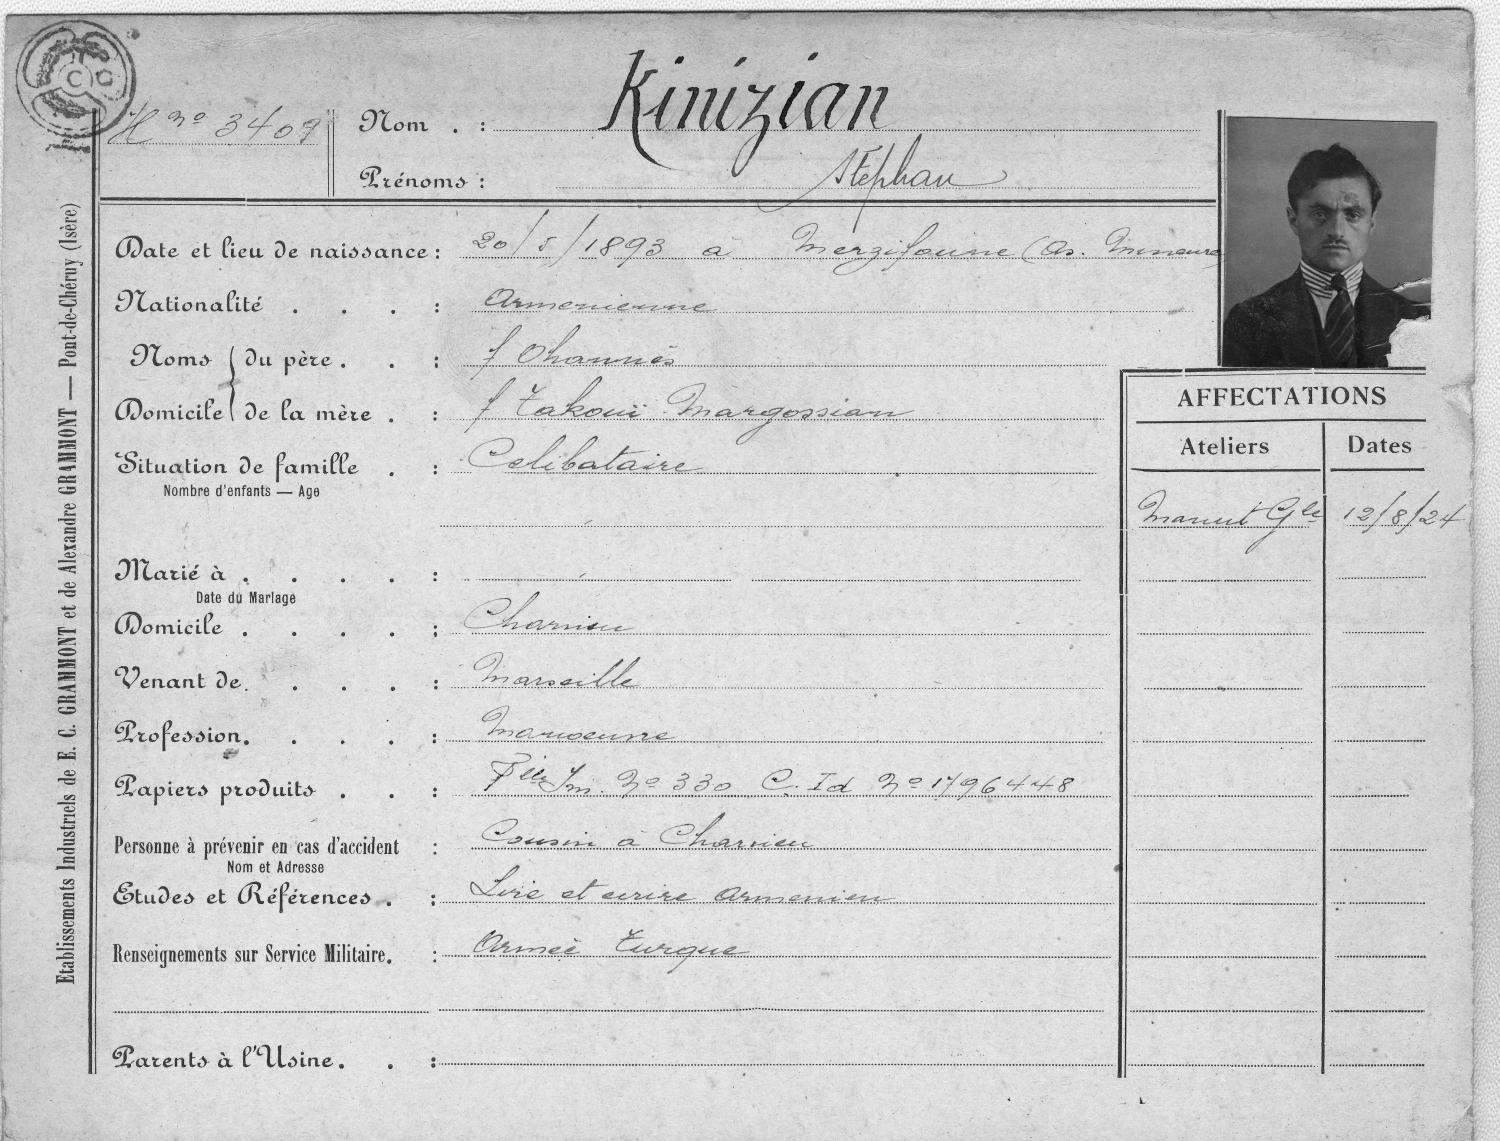 C G
H nº 3409
Nom . : Kinizian
Prénoms : Stéphan
Date et lieu de naissance : 20/5/1893 à Merzifoune (As. Mineure)
Nationalité . . . : Armenienne
Noms du père . . : f Ohannès
Domicile de la mère . : f Takouï Margossian
Situation de famille . : Celibataire
Nombre d'enfants — Age
Marié à . . . . :
Date du Mariage
Domicile . . . . : Charvieu
Venant de . . . : Marseille
Profession . . . . : Manoeuvre
Papiers produits . . : Flle Im. Nº 330 C. Id Nº 1796448
Personne à prévenir en cas d'accident : Cousin à Charvieu
Nom et Adresse
Etudes et Références . : Lire et ecrire Armenien
Renseignements sur Service Militaire . : Armée Turque
Parents à l'Usine . . :
AFFECTATIONS
Ateliers Dates
Manut Gle 12/8/24
Etablissements Industriels de E. C. GRAMMONT et de Alexandre GRAMMONT — Pont-de-Chéruy (Isère)